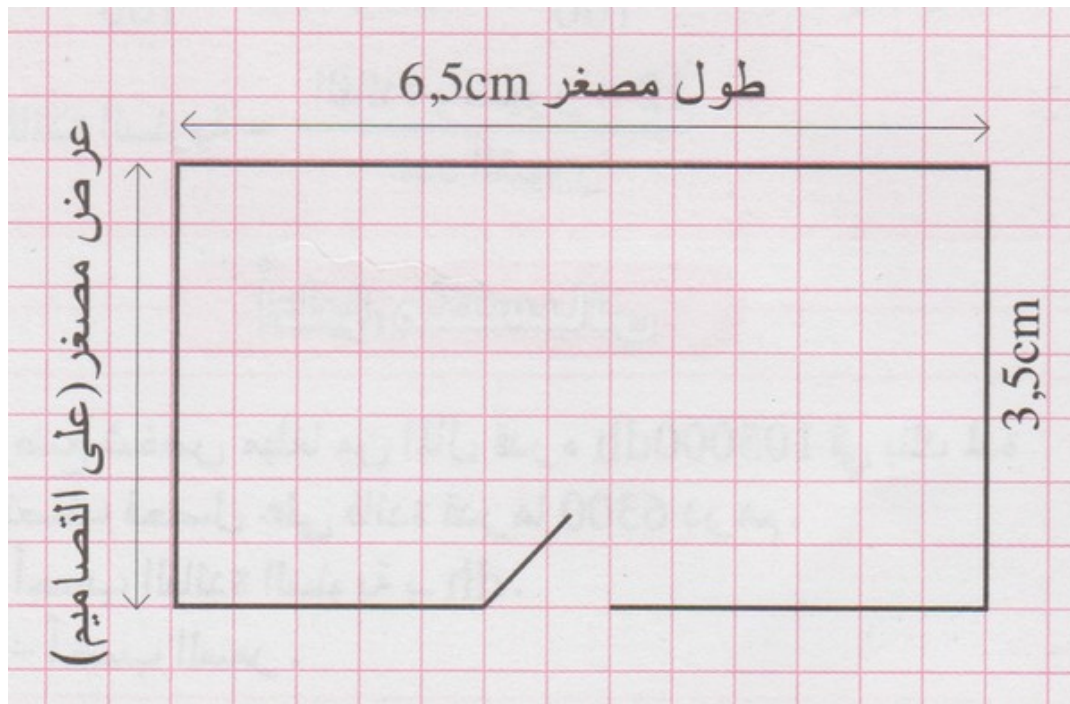 طول مصغر 6,5cm
عرض مصغر (على التصاميم)
3,5cm